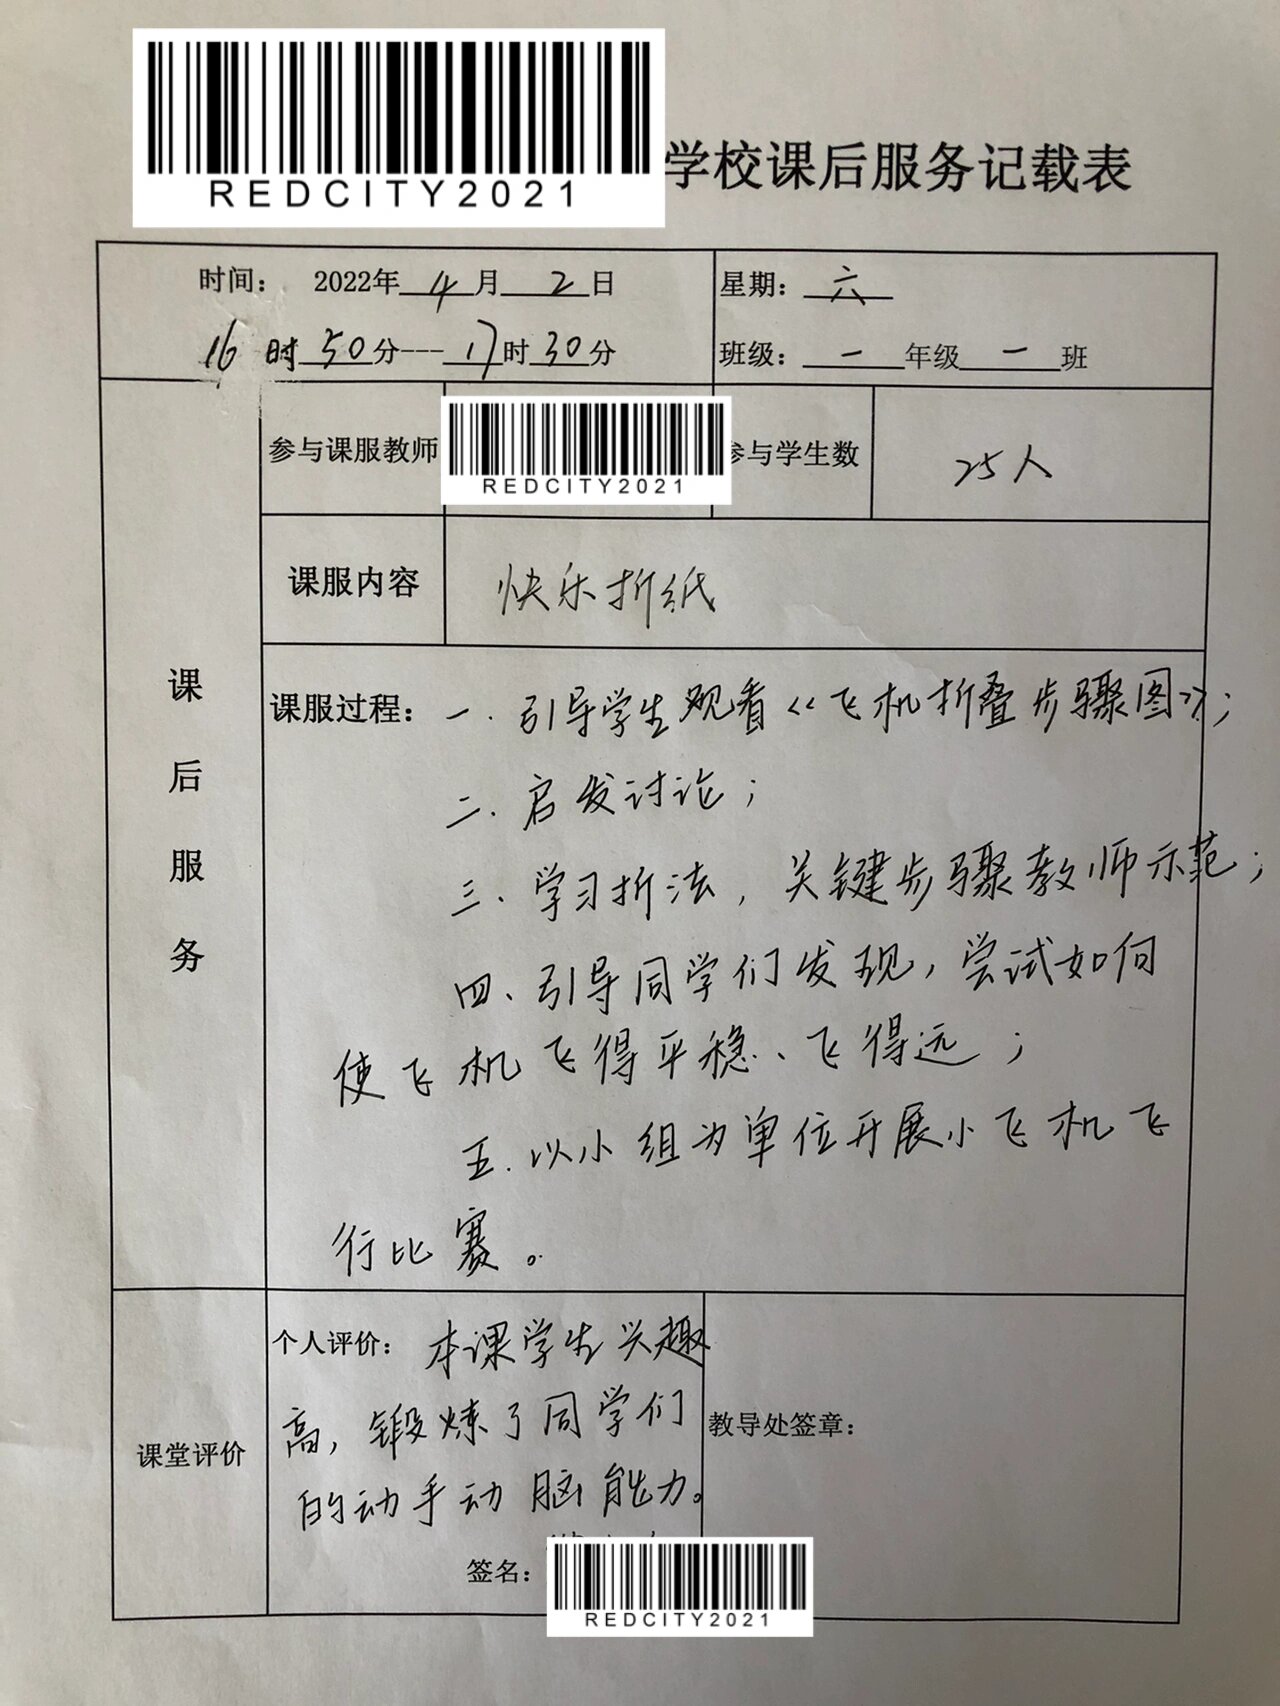 REDCITY2021
学校课后服务记载表
时间： 2022年 4 月 2 日
星期： 六
16 时 50 分---17 时 30 分
班级： 一 年级 一 班
参与课服教师
REDCITY2021
参与学生数
25人
课服内容
快乐折纸
课后服务
课服过程：一. 引导学生观看《飞机折叠步骤图》；
二. 启发讨论；
三. 学习折法，关键步骤教师示范；
四、引导同学们发现，尝试如何
使飞机飞得平稳、飞得远；
五. 以小组为单位开展小飞机飞
行比赛。
课堂评价
个人评价： 本课学生兴趣
高，锻炼了同学们
的动手动脑能力。
签名：
REDCITY2021
教导处签章：